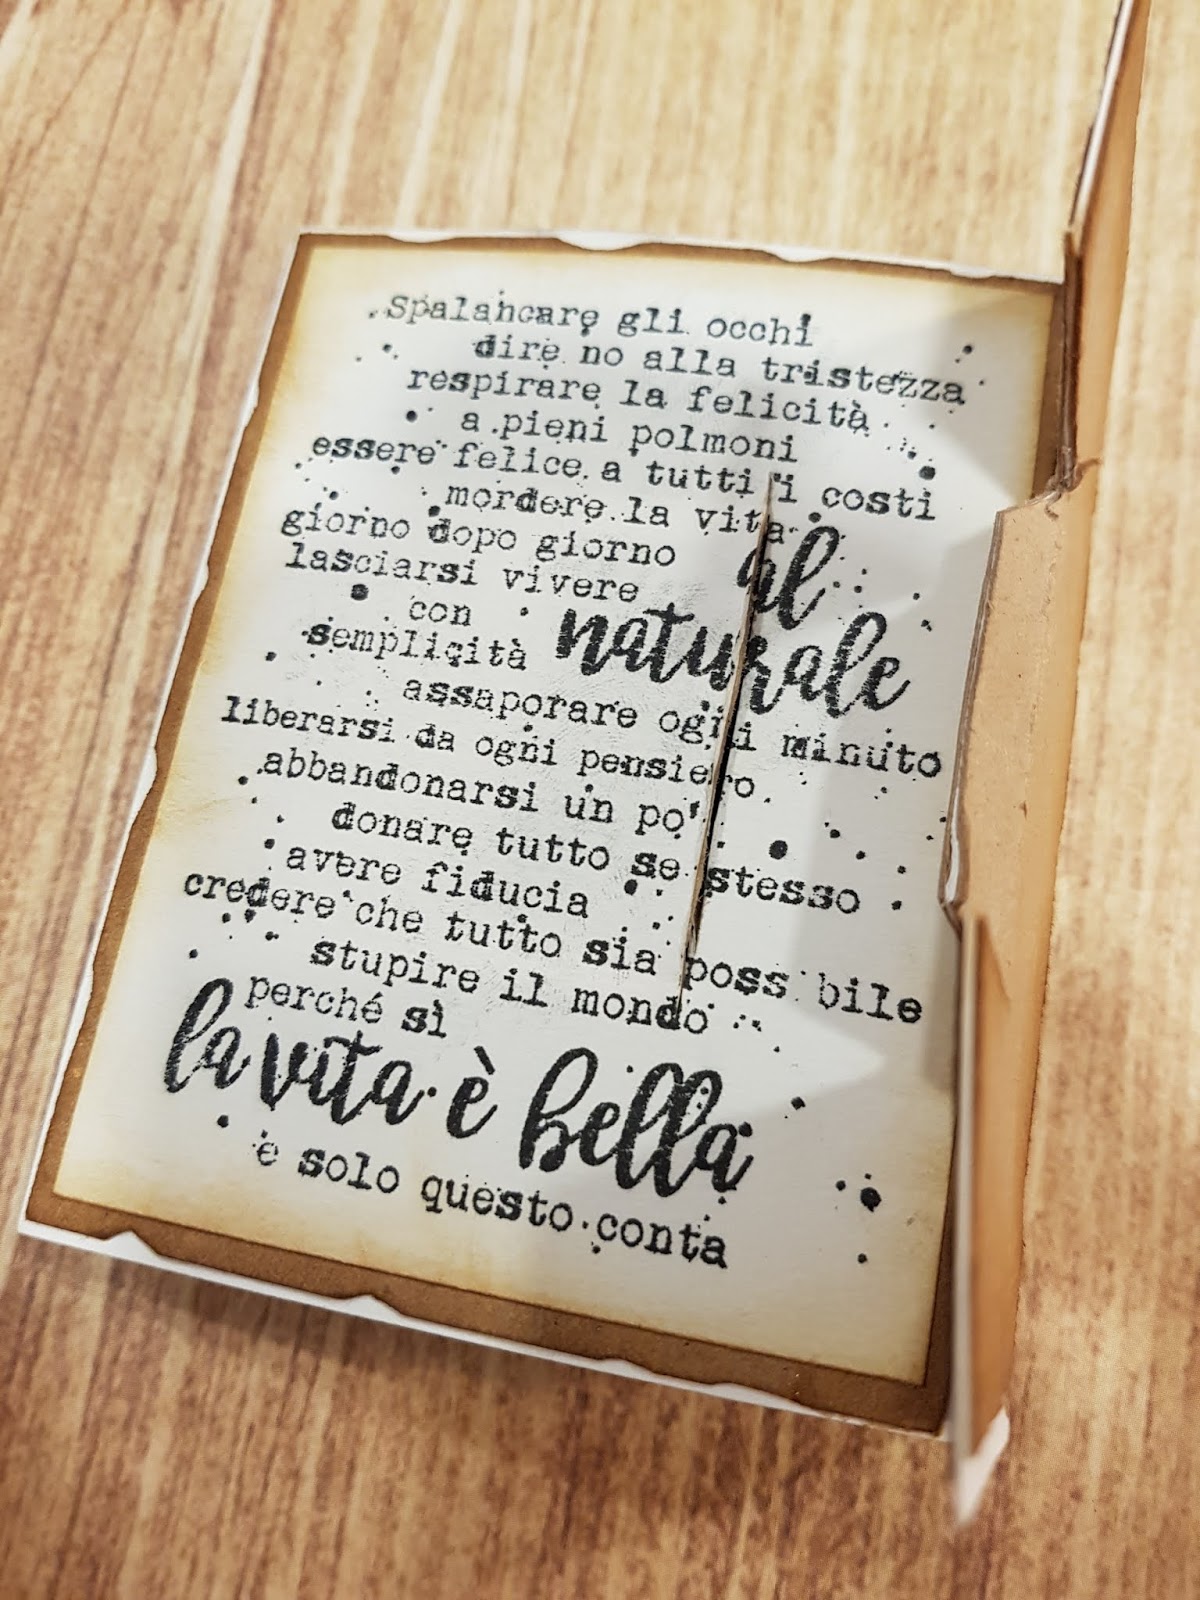 Spalancare gli occhi
dire no alla tristezza
respirare la felicità
a pieni polmoni
essere felice a tutti i costi
mordere la vita
giorno dopo giorno
lasciarsi vivere
al
con
naturale
semplicità
assaporare ogni minuto
liberarsi da ogni pensiero
abbandonarsi un po'
donare tutto se stesso
avere fiducia
credere che tutto sia poss bile
stupire il mondo
perché sì
la vita è bella
e solo questo conta